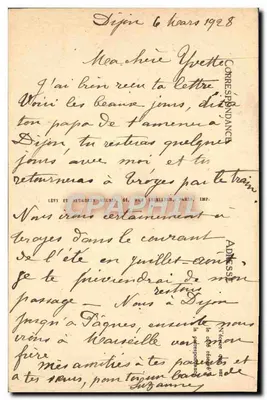 Dijon 6 Mars 1928
Ma chère Yvette
J'ai bien reçu ta lettre
Voici les beaux jours, dis à
ton papa de t'amener à
Dijon, tu resteras quelques
jours avec moi et tu
retourneras à Troyes par le train.
Nous irons certainement à
Troyes dans le courant
de l'été en juillet-août
je te préviendrai de mon
passage - Nous restons à Dijon
jusqu'à Pâques, ensuite nous
irons à Marseille voir mon
frère
mes amitiés à tes parents et
à tes sœurs, pour toi un baiser de
Suzanne
CORRESPONDANCE
ADRESSE